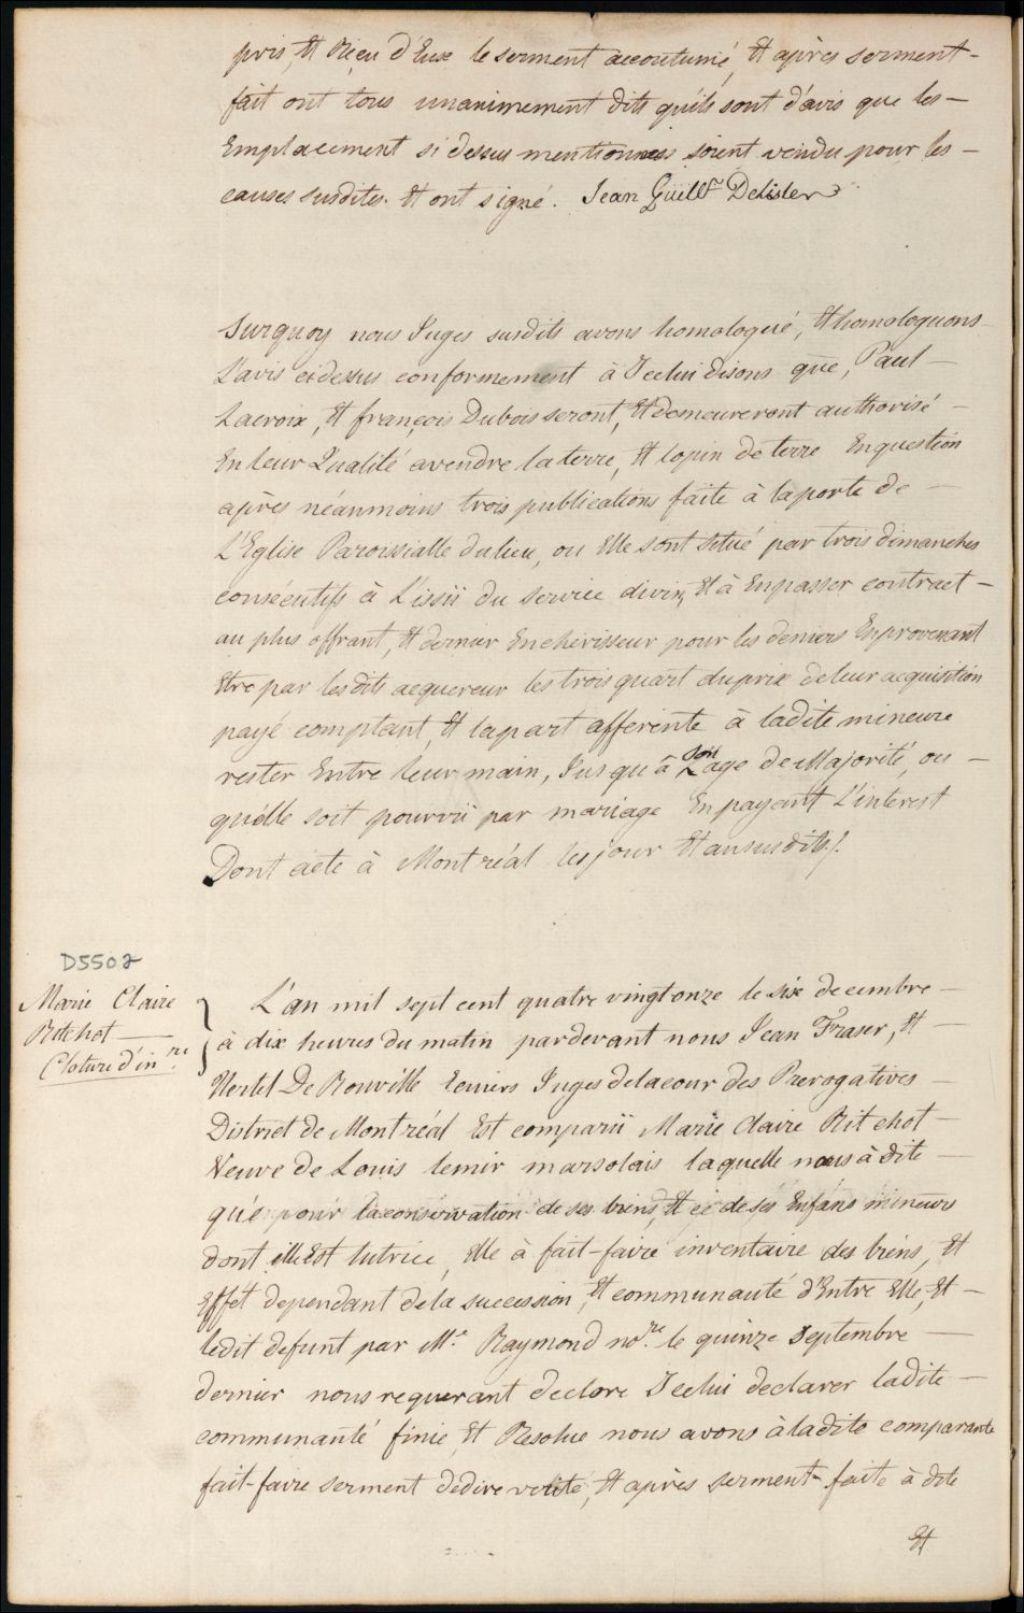 pris, Et Reçu d'Eux le serment accoutumé, Et après serment-
fait ont tous unanimement dits qu'ils sont d'avis que les-
Emplacement si dessus mentionness soient vendu pour les-
causes susdites. Et ont signé. Jean Güillr Delisler
Surquoy nous Juges susdits avons homologué, Et homologuons
L'avis cidessus conformement à Icelui disons que, Paul
Lacroix, Et françois Dubois seront, Et demeureront authorisé-
En leur Qualité a vendre la terre, Et lopin de terre En question
après néanmoins trois publications faite à la porte de-
L'Eglise Paroissialle du lieu, ou Elle sont situé par trois dimanches
consécutifs à L'issü du service divin, Et à En passer contract-
au plus offrant, Et dernier Encherisseur pour les deniers En provenant
Etre par lesdits acquereur les trois quart du prix de leur acquisition
payé comptant, Et la part afferente à ladite mineure
rester Entre leur main, Jusqu'à son age de Majorité, ou-
qu'elle soit pourvü par mariage En payant L'interest
Dont acte à Montréal les jour Et an susdits./.
D5502
Marie Claire
Ritchot
Cloture d'in.re
L'an mil sept cent quatre vingt onze le six decembre-
à dix heures du matin pardevant nous Jean Fraser, Et-
Hertel De Rouville Ecuiers Juges de la cour des Prerogatives-
District de Montréal Est comparü Marie Claire Ritchot-
Veuve de Louis lemir marsolais laquelle nous à dite-
qu'e pour la conservation de ses biens, Et ce de ses Enfans mineurs
dont elle Est tutrice, Elle à fait-faire inventaire des biens, Et
Effét dependant de la succession, Et communauté d'Entre Elle, Et-
ledit defunt par Mr. Raymond no.re le quinze Septembre-
dernier nous requerant declore Icelui declarer ladite-
communauté finie Et Resolue nous avons à ladite comparante
fait-faire serment de dire verité, Et après serment-faite à dite
Et